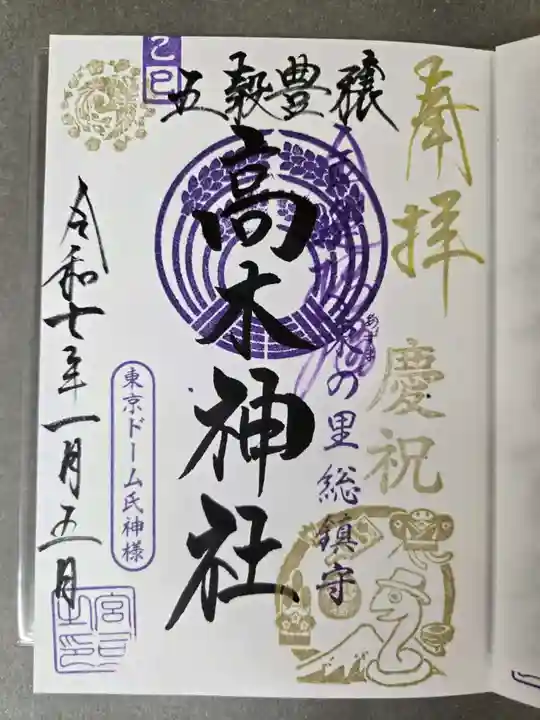 奉拝
慶祝
の里総鎮守
五穀豊穣
高木神社
乙巳
東京ドーム氏神様
令和七年一月五日